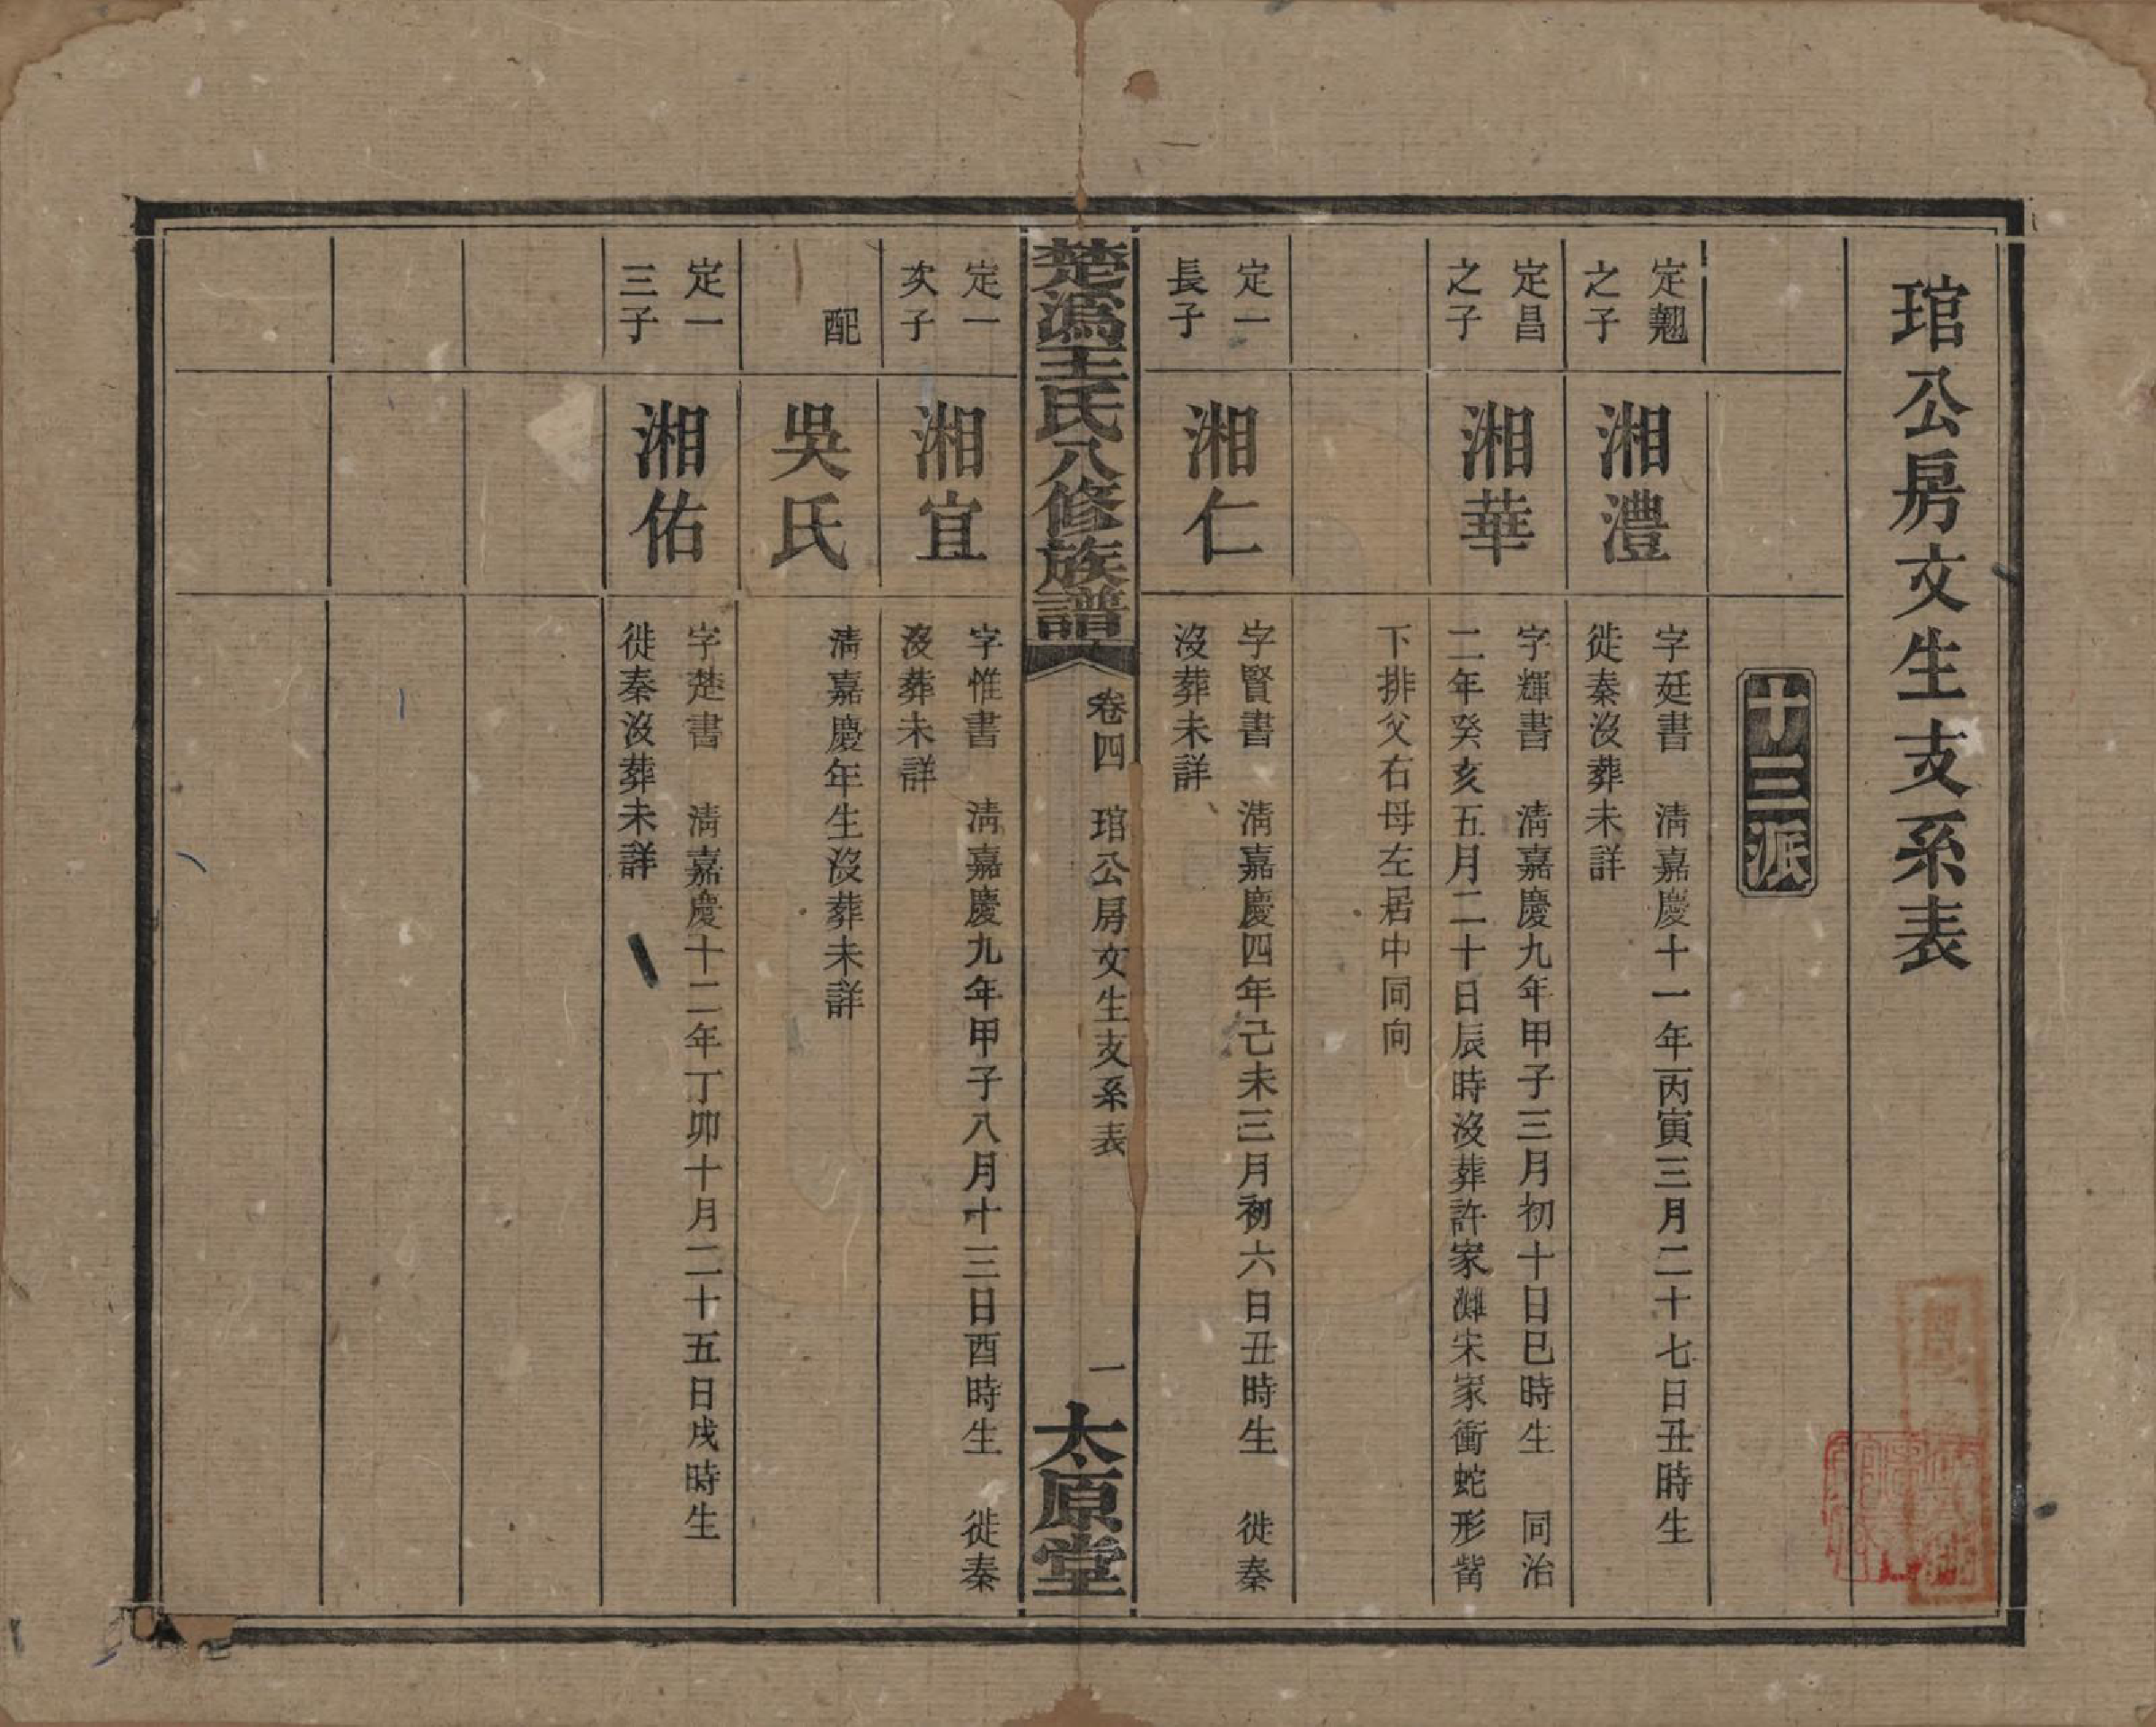 琯公房文生支系表
十三派
定翹
之子
湘澧
字廷書　清嘉慶十一年丙寅三月二十七日丑時生
徙秦沒葬未詳
定昌
之子
湘華
字輝書　清嘉慶九年甲子三月初十日巳時生　同治
二年癸亥五月二十日辰時沒葬許家灘宋家衝蛇形嘴
下排父右母左居中同向
定一
長子
湘仁
字賢書　清嘉慶四年己未三月初六日丑時生　徙秦
沒葬未詳
楚溈王氏八修族譜
卷四　琯公房文生支系表
一
太原堂
定一
次子
湘宜
字惟書　清嘉慶九年甲子八月十三日酉時生　徙秦
沒葬未詳
配
吳氏
清嘉慶年生沒葬未詳
定一
三子
湘佑
字楚書　清嘉慶十二年丁卯十月二十五日戌時生
徙秦沒葬未詳